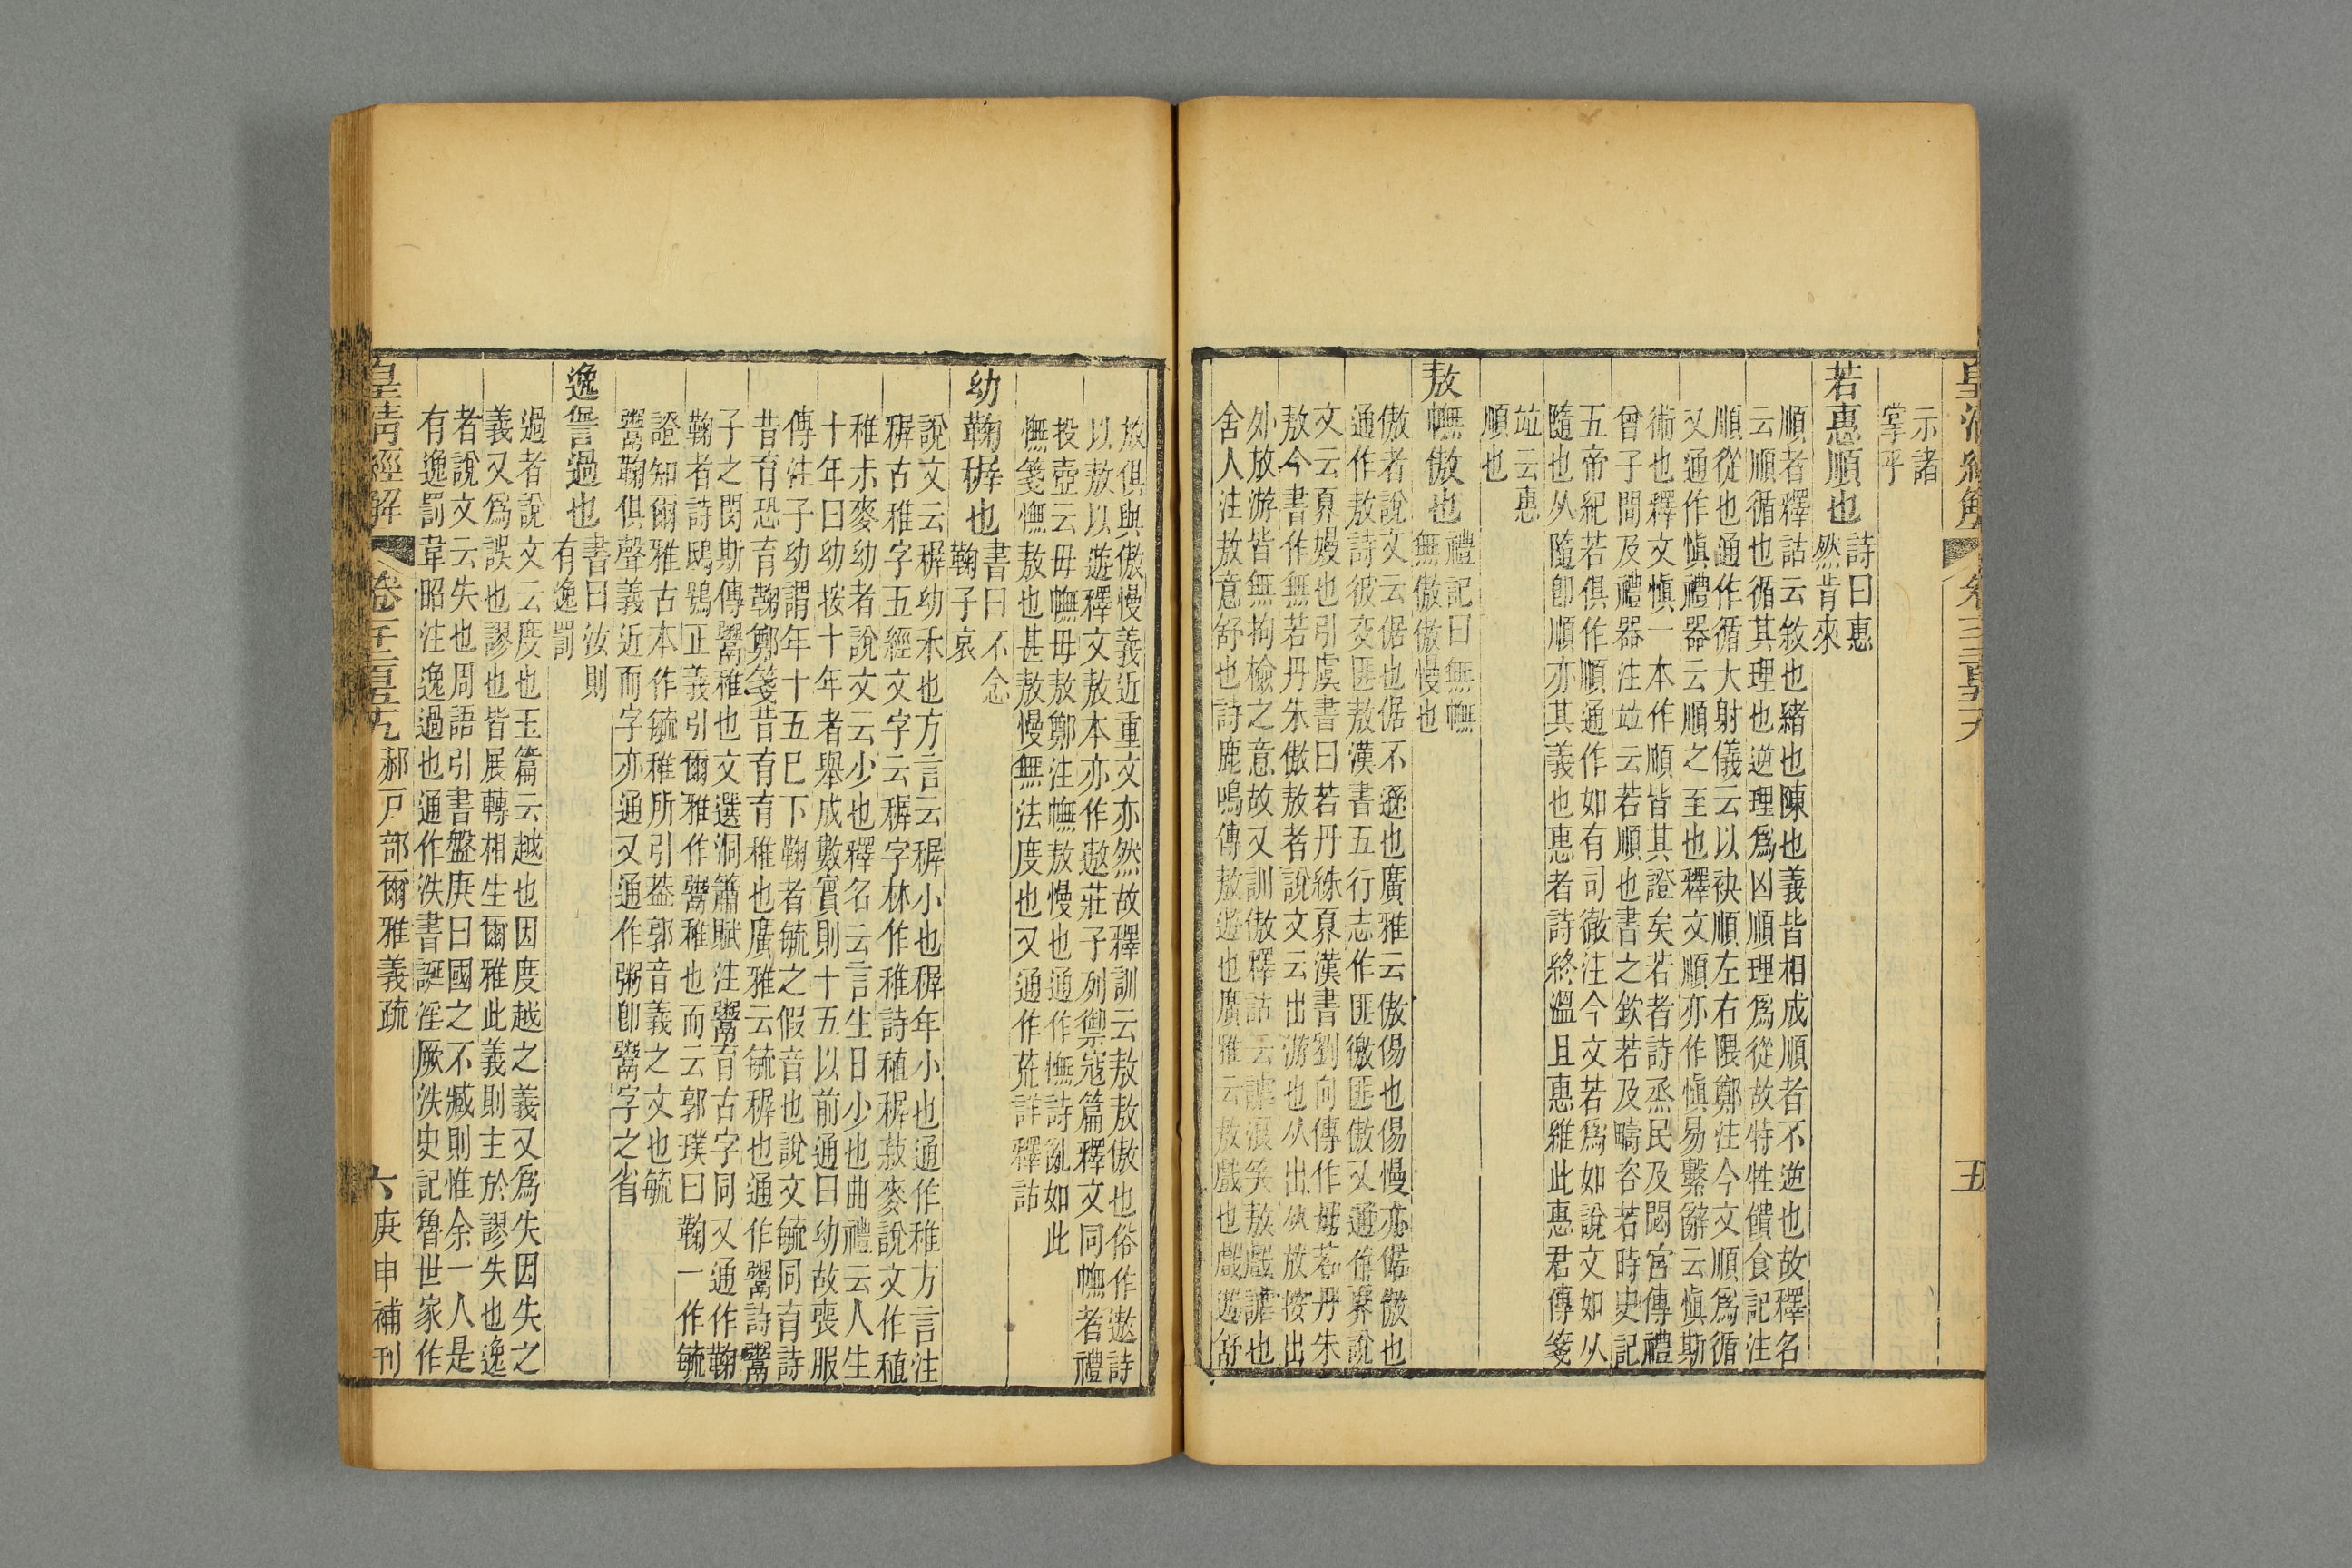 示諸
掌乎
若惠順也
詩曰惠
然肯來
順者釋詁云敘也緒也陳也義皆相成順者不逆也故釋名
云順循也循其理也逆理爲凶順理爲從故特牲饋食記注
順從也通作循大射儀云以袂順左右隈鄭注今文順爲循
又通作愼禮器云順之至也釋文順亦作愼易繫辭云愼斯
術也釋文愼一本作順皆其證矣若者詩烝民及閟宮傳禮
曾子問及禮器注竝云若順也書之欽若及疇咨若時史記
五帝紀若俱作順通作如有司徹注今文若爲如說文如从
隨也从隨卽順亦其義也惠者詩終溫且惠維此惠君傳箋
竝云惠
順也
敖幠傲也
禮記曰無幠
無傲傲慢也
傲者說文云倨也倨不遜也廣雅云傲傷也傷慢亦倨傲也
通作敖詩彼交匪敖漢書五行志作匪徼匪傲又通作奡說
文云奡嫚也引虞書曰若丹絑奡漢書劉向傳作毋若丹朱
敖今書作無若丹朱傲敖者說文云出游也从出从放按出
外放游皆無拘檢之意故又訓傲釋詁云謔浪笑敖戲謔也
舍人注敖意舒也詩鹿鳴傳敖遊也廣雅云敖戲也戲遊舒
放俱與傲慢義近重文亦然故釋訓云敖敖傲也俗作遨詩
以敖以遊釋文敖本亦作遨莊子列禦寇篇釋文同幠者禮
投壺云毋幠毋敖鄭注幠敖慢也通作憮詩亂如此
憮箋憮敖也甚敖慢無法度也又通作荒詳釋詁
幼鞠稺也
書曰不念
鞠子哀
說文云稺幼禾也方言云稺小也稺年小也通作稚方言注
稺古稚字五經文字云稺字林作稚詩稙稺菽麥說文作稙
稚尗麥幼者說文云少也釋名云言生日少也曲禮云人生
十年曰幼按十年者舉成數實則十五以前通曰幼故喪服
傳注子幼謂年十五已下鞠者毓之假音也說文毓同育詩
昔育恐育鞫鄭箋昔育育稚也廣雅云毓稺也通作鬻詩鬻
子之閔斯傳鬻稚也文選洞簫賦注鬻育古字同又通作鞠
鞠者詩鴟鴞正義引爾雅作鬻稚也而云郭璞曰鞠一作毓
證知爾雅古本作毓稚所引葢郭音義之文也毓
鬻鞠俱聲義近而字亦通又通作粥卽鬻字之省
逸諐過也
書曰汝則
有逸罰
過者說文云度也玉篇云越也因度越之義又爲失因失之
義又爲誤也謬也皆展轉相生爾雅此義則主於謬失也逸
者說文云失也周語引書盤庚曰國之不臧則惟余一人是
有逸罰韋昭注逸過也通作泆書誕淫厥泆史記魯世家作
皇清經解
郝戶部爾雅義疏
六
庚申補刊